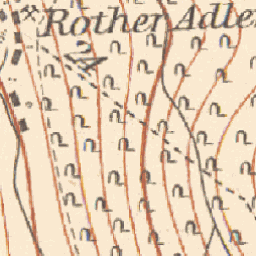 Rother Adler